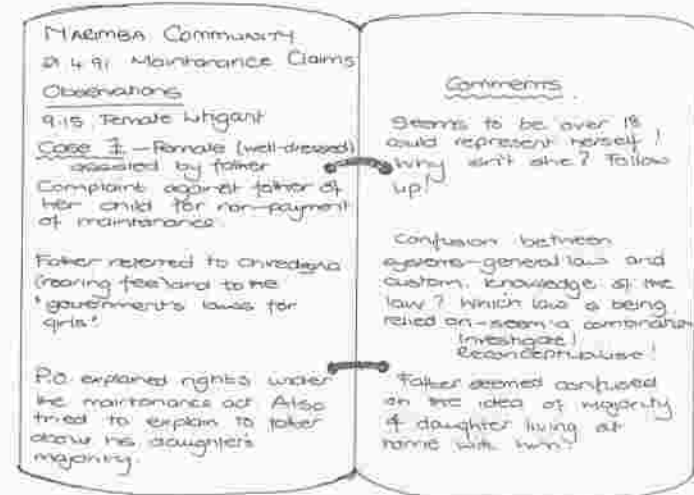 MARIMBA COMMUNITY
4.91 Maintenance Claims
Observations
9.15 Female litigant
Case 1 - Female (well-dressed)
assisted by father
Complaint against father of
her child for non-payment
of maintenance.
Father referred to
(rearing fee) and to the
"government's laws for
girls"
P.O. explained rights under
the maintenance act. Also
tried to explain to father
about his daughter's
majority.
Comments
Seems to be over 18
could represent herself!
Why isn't she? Follow
up!
Confusion between
systems - general law and
custom. Knowledge of the
law? Which law is being
relied on - seem a combination
Investigate!
Reconceptualise!
Father seemed confused
on the idea of majority
& daughter living at
home with him!